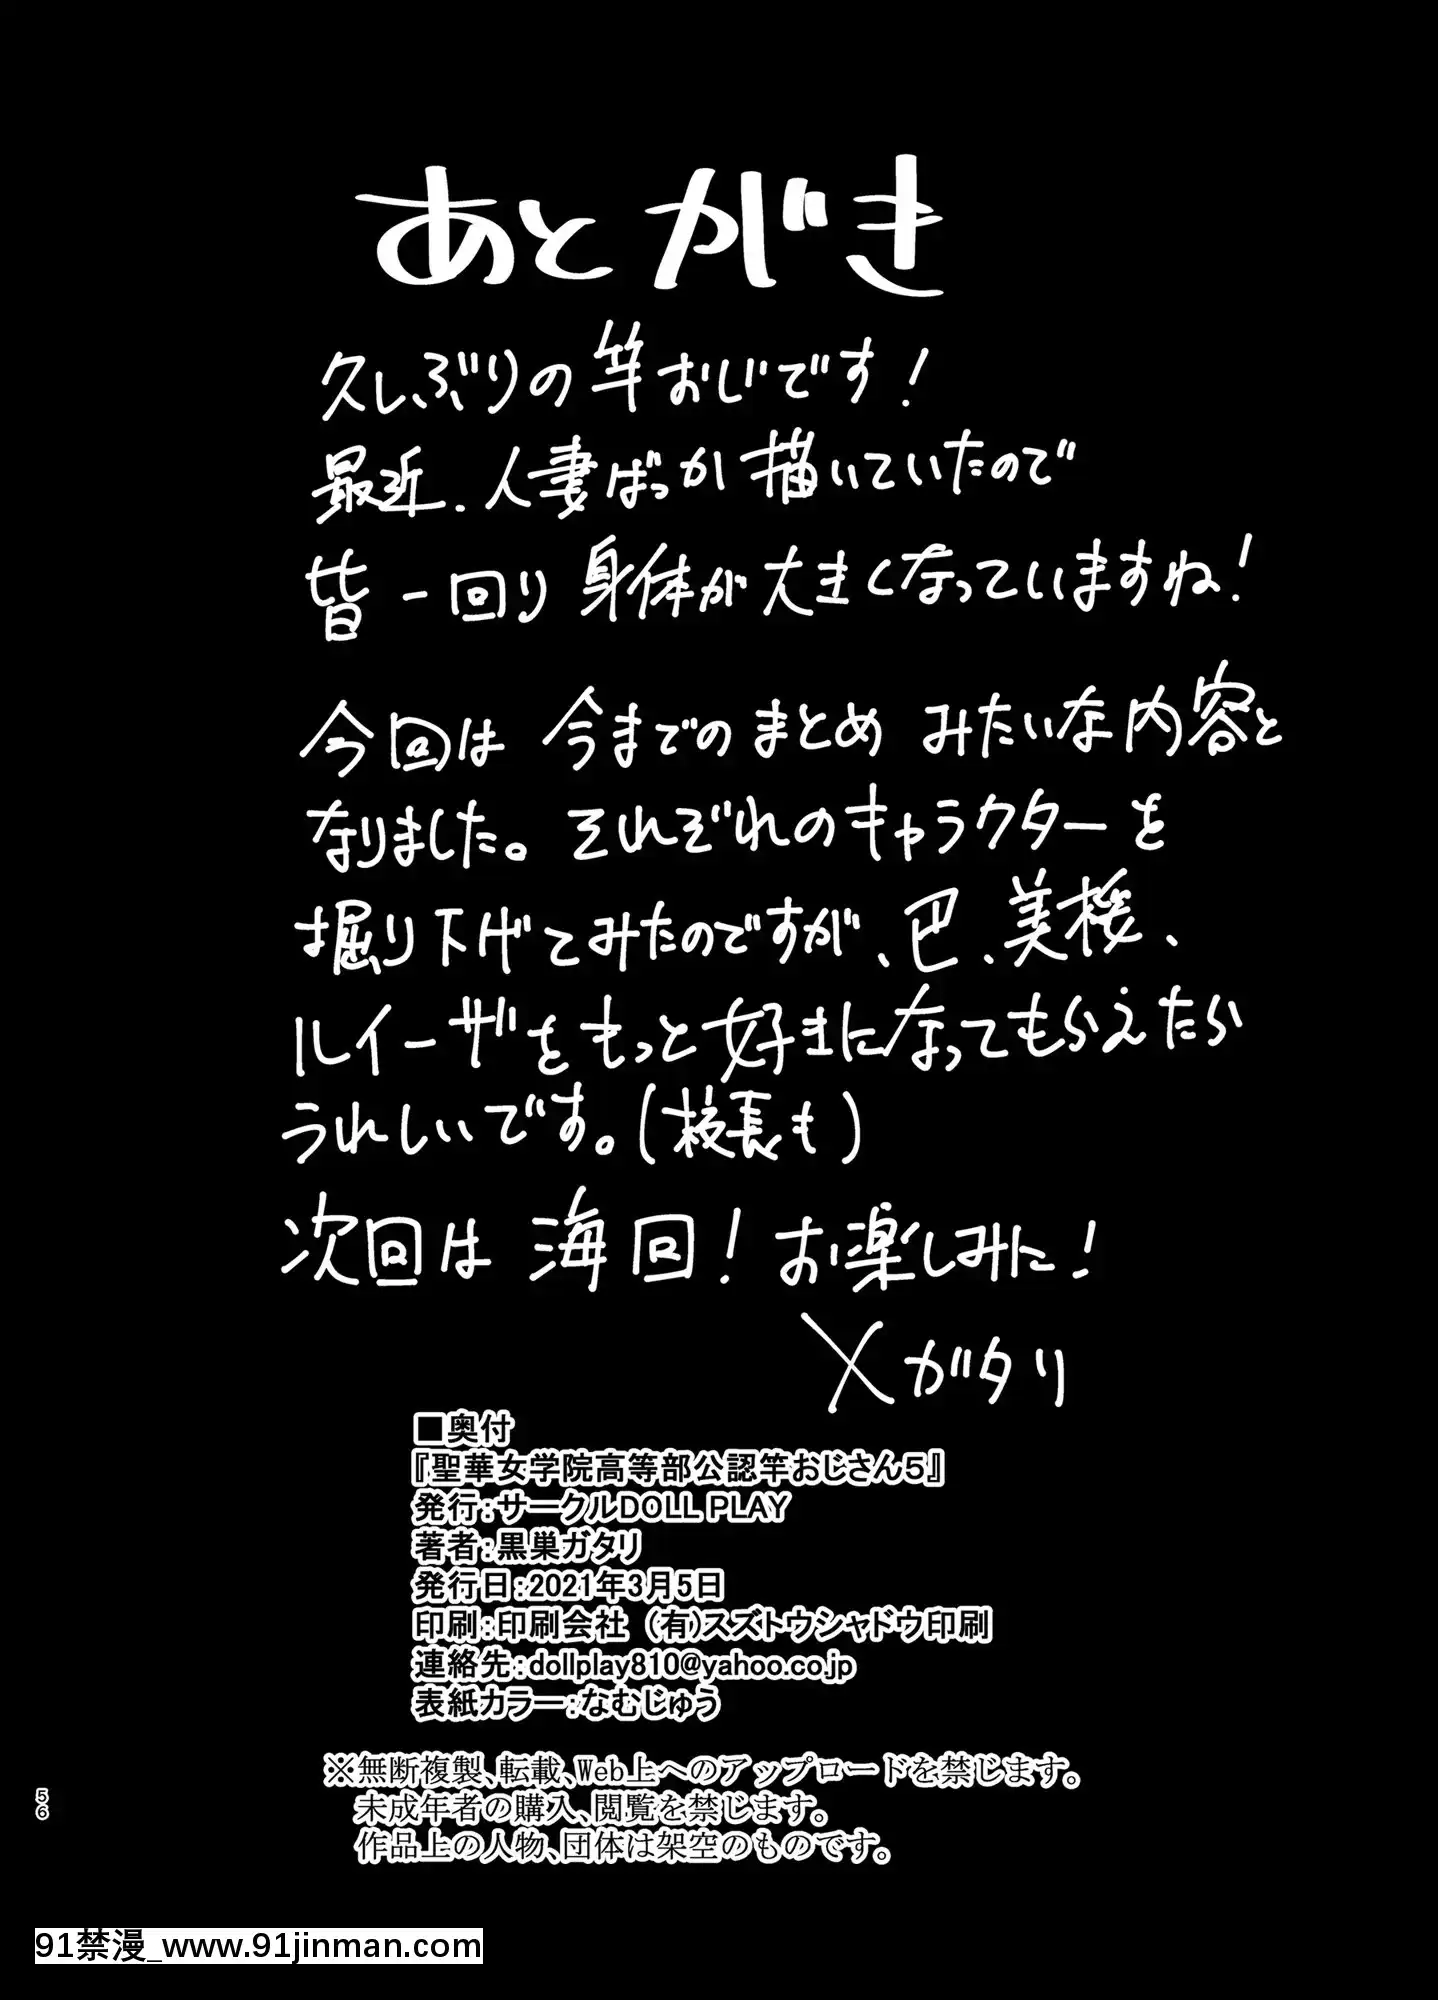 あとがき
久しぶりの竿おじです!
最近、人妻ばっか描いていたので
皆一回り身体が大きくなっていますね!
今回は今までのまとめみたいな内容と
なりました。それぞれのキャラクターを
掘り下げてみたのですが、巴、美桜、
ルイーザをもっと好きになってもらえたら
うれしいです。(校長も)
次回は海回!お楽しみに!
メガタリ
□奥付
『聖華女学院高等部公認竿おじさん5』
発行:サークルDOLL PLAY
著者:黒巣ガタリ
発行日:2021年3月5日
印刷:印刷会社 (有)スズトウシャドウ印刷
連絡先:dollplay810@yahoo.co.jp
表紙カラー:なむじゅう
※無断複製、転載、Web上へのアップロードを禁じます。
未成年者の購入、閲覧を禁じます。
作品上の人物、団体は架空のものです。
56
91禁漫_www.91jinman.com